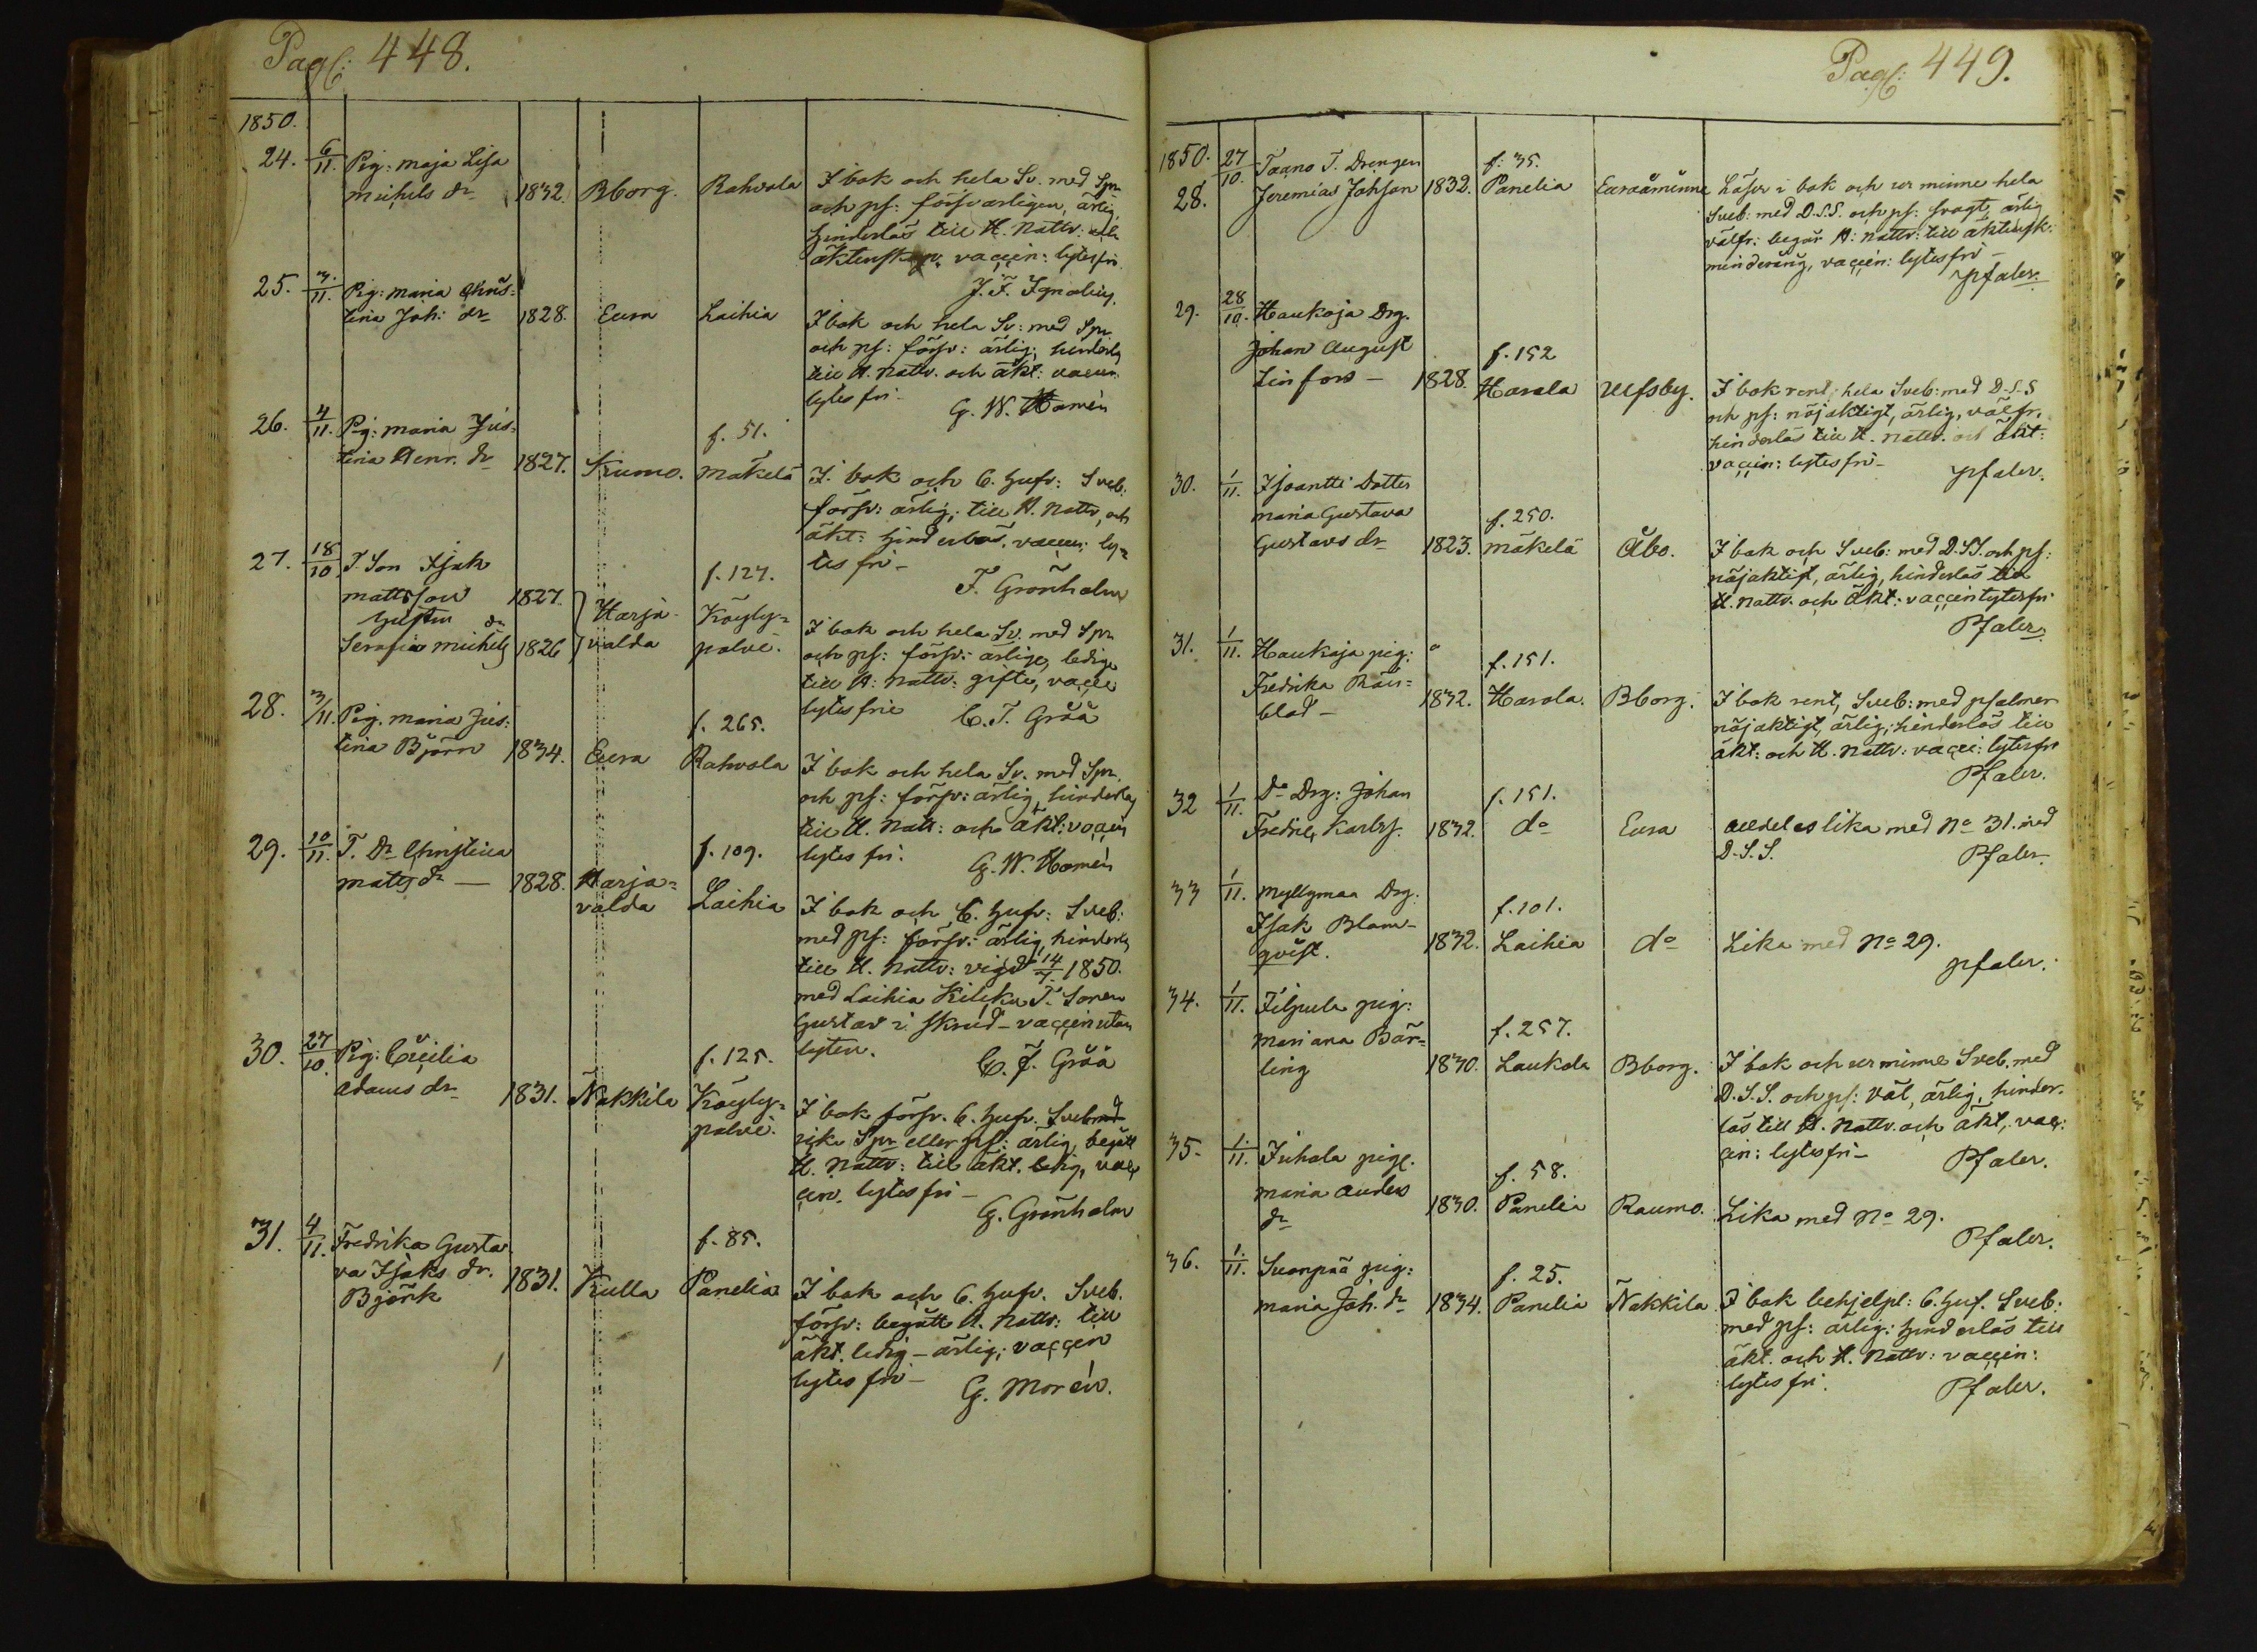 Pag: 448.
1850.
24. 6/11. Pig: Maja Lisa
Michels dr 1832. Bborg. Rahvola I bok och hela Sv. med Spr
och ps: försvarligen, ärlig,
hinderlös till H. Nattv:
äktenskap vaccin: lytesfri.
J. F. Ignatius.
25. 3/11. Pig: Maria Chris-
tina Joh: dr 1828. Eura Laihia I bok och hela Sv: med Spr
och ps: försv: ärlig, hinderlös
till H. Nattv. och äkt: vaccin.
lytes fri - G. W. Homén
26. 4/11. Pig: Maria Jus- f. 51.
tina Henr. dr 1827. Kiumo. Mäkelä I. bok och 6. hufv: Sveb:
försv: ärlig; till H. Nattv, och
äkt: hinderlös, vaccin: ly-
tes fri - F. Grönholm
27. 18/10 T. Son Isak f. 127.
Mattsson 1827. Harja- Köyly-
hustru
Serafia Michels dr 1826 valda polvi. I bok och hela Sv. med Spr
och ps: försv: ärlige, ledige
till H: Nattv: gifte, vacci
lytes frie C. F. Gråå
28. 3/11. Pig. Maria Jus- f. 265.
tina Björn 1834. Eura Rahvola I bok och hela Sv. med Spr.
och ps: försv: ärlig, hinderlös
till H. Natt: och äkt: vaccin
lytes fri. G. W. Homén
29. 10/11. T. Dr Christina f. 109.
Matts dr — 1828. Harja-
valda Laihia I bok och 6. hufv: Sveb:
med ps: försv: ärlig, hinderlös
till H. Nattv: vigd 14/7 1850.
med Laihia Kilkku T. Sonen
Gustav i skrud - vaccin utan
lyten. C. F. Gråå
30. 27/10. Pig: Cecilia f. 125.
Adams dr 1831. Nakkila Köyly-
polvi. I bok försv. 6. hufv. Sveb med
Spr eller ps: ärlig, begått
H. Nattv: till äkt. ledig, vac
cin. lytes fri -
G. Grönholm
31. 4/11. Fredrika Gusta- f. 85.
va Isaks dr.
Björk 1831. Kulla Panelia I bok och 6. hufv. Sveb.
försv: begått H. Nattv: till
äkt. ledig - ärlig; vaccin
lytes fri - G. Morén.
Pag: 449.
1850. 27/10. Taano T. Drengen f: 35.
28. Jeremias Johsson 1832. Panelia Euraåminne Läser i bok och ur minne hela
Sveb: med D.S.S. och ps: svagt, ärlig
välfr: begär H: Nattv: till äktensk:
minderårig, vaccin: lytes fri -
Pfaler.
29. 28/10. Haukoja Drg.
Johan August f. 152
Linfors - 1828. Harola Ulfsby. I bok rent, hela Sveb: med D.S.S
och ps: nöjaktigt, ärlig, välfr.
hinderlös till H. Nattv. och äkt:
vaccin: lytes fri - Pfaler.
30. 1/11. Isoantti Dotter
Maria Gustava f. 250.
Gustavs dr 1823. Mäkelä Åbo. I bok och Sveb: med D.S.S. och ps:
nöjaktigt, ärlig, hinderlös till
H. Nattv. och äkt: vaccin lytes fri
Pfaler.
31. 1/11. Haukoja pig: f. 151.
Fredrika Räis-
blad - 1832. Harola. Bborg. I bok rent, Sveb: med psalmer
nöjaktigt, ärlig, hinderlös till
äkt: och H. Nattv: vacci: lytes fri
Pfaler.
32 1/11. Do Drg: Johan f. 151.
Fredric Karlss. 1832. do Eura Alldeles lika med No 31. med
D.S.S. Pfaler.
33 1/11. Myllymaa Drg: f. 101.
Isak Blom-
qvist. 1832. Laihia do Lika med No 29.
Pfaler.
34. 1/11. Filpula pig:
Mariana Bär- f. 257.
ling 1830. Laukola Bborg. I bok och ur minne Sveb. med
D.S.S. och ps: väl, ärlig, hinder-
lös till H. Nattv. och äkt, vac-
cin: lytes fri - Pfaler.
35. 1/11. Juhola pig.
Maria Anders f. 58.
dr 1830. Panelia Raumo. Lika med No 29.
Pfaler.
36. 1/11. Suonpää pig: f. 25.
Maria Joh. dr 1834. Panelia Nakkila I bok behjelpl: 6. huf. Sveb:
med ps: ärlig: hinderlös till
äkt. och H. Nattv: vaccin:
lytes fri. Pfaler.